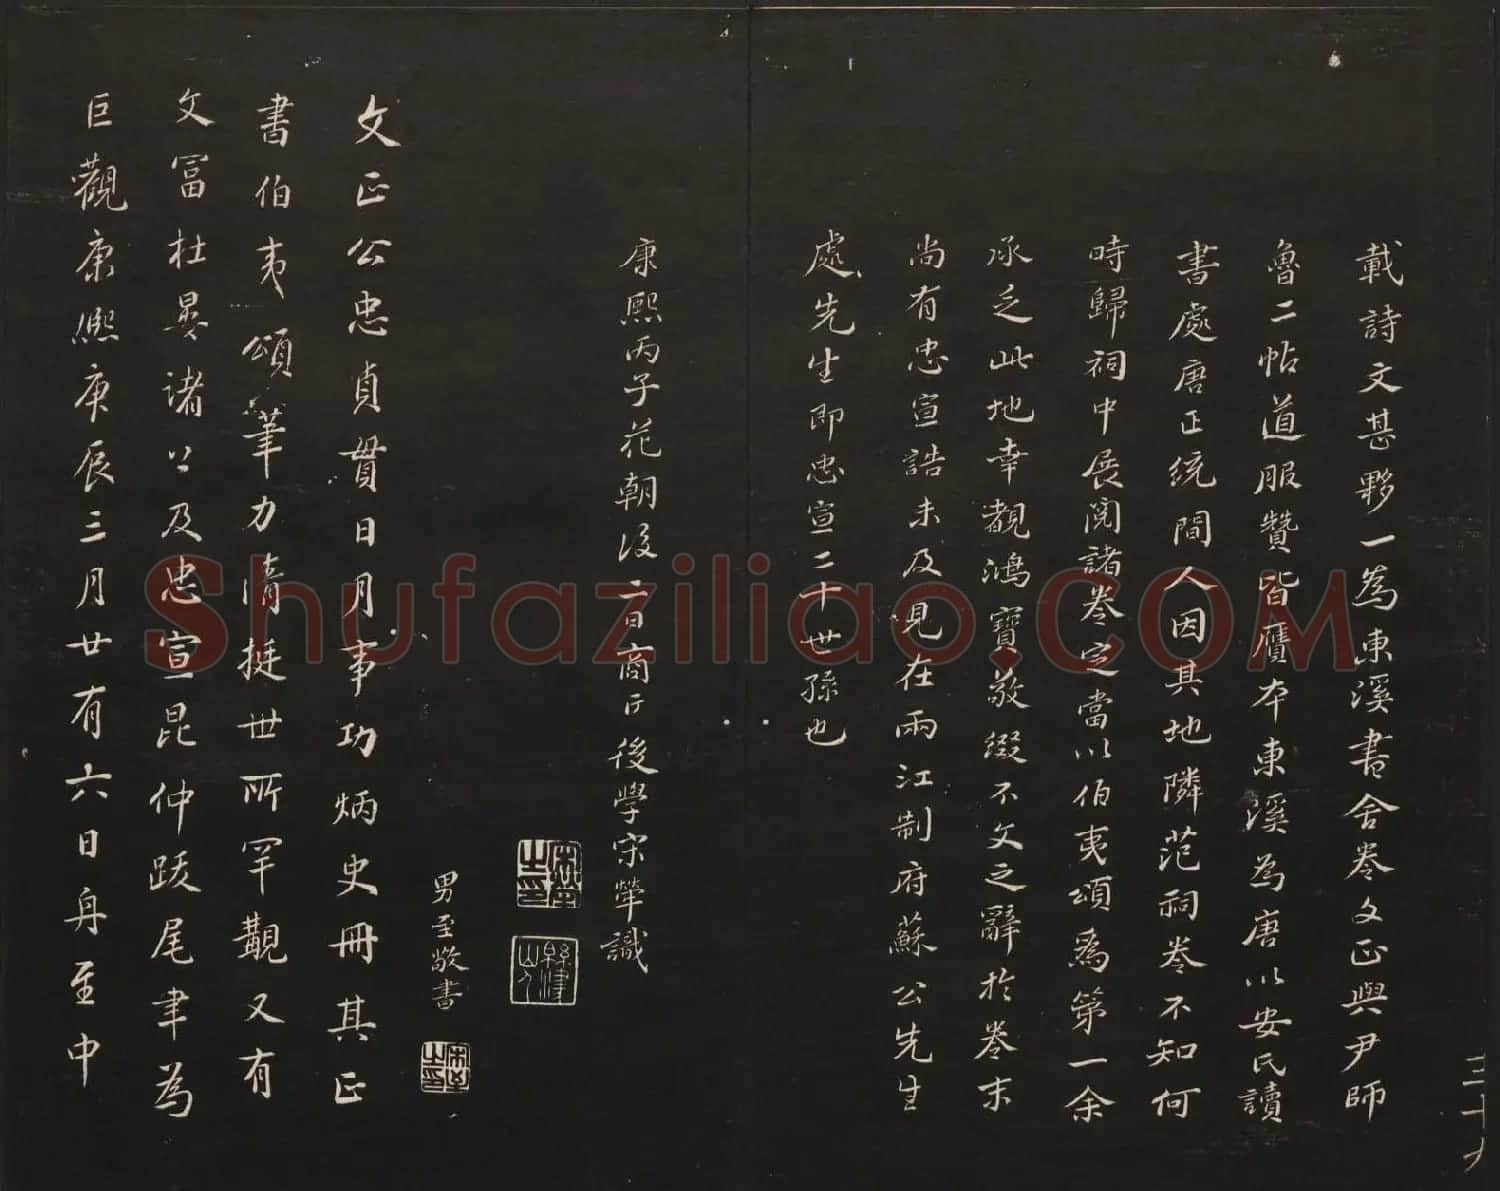 載詩文甚夥一為東溪書舍卷文正與尹師
魯二帖道服贊皆贋本東溪為唐以安氏讀
書處唐正統間人因其地隣范祠卷不知何
時歸祠中展閱諸卷定當以伯夷頌為第一余
承乏此地幸覩鴻寶敬綴不文之辭於卷末
尚有忠宣誥未及見在兩江制府蘇公先生
處先生即忠宣二十世孫也
康熙丙子花朝後二日商丘後學宋犖識
宋犖之印
緜津山人
男至敬書
文正公忠貞貫日月事功炳史冊其正
書伯夷頌筆力清挺世所罕觀又有
文富杜晏諸公及忠宣昆仲跋尾聿為
巨觀康熙庚辰三月廿有六日舟至中
三十九
Shufaziliao.COM